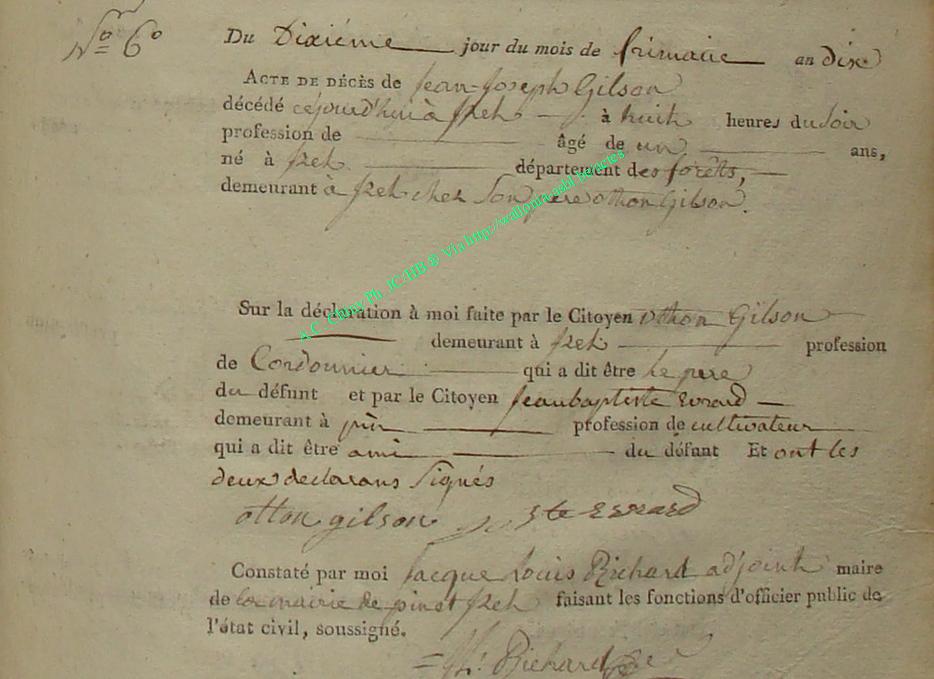 N.º 6º
Du Dixiéme jour du mois de frimaire an dix
ACTE DE DÉCÈS de jean-Joseph Gilson
décédé cejourd'hui à à huit heures du soir
profession de âgé de un ans,
né à département des forêts,
demeurant à chez Son pere othon Gilson.
A.C. Chiny Ph. JC.HB ® Via http://wallonia-asbl
Sur la déclaration à moi faite par le Citoyen othon Gilson
demeurant à profession
de Cordonnier qui a dit être le pere
du défunt et par le Citoyen jean baptiste Evrard
demeurant à pin profession de cultivateur
qui a dit être ami du défunt Et ont les
deux declarans Signés
otton gilson ste Evrard
Constaté par moi jacque Louis Richard adjoint maire
de la mairie de pin et faisant les fonctions d'officier public de
l'état civil, soussigné.
Richard